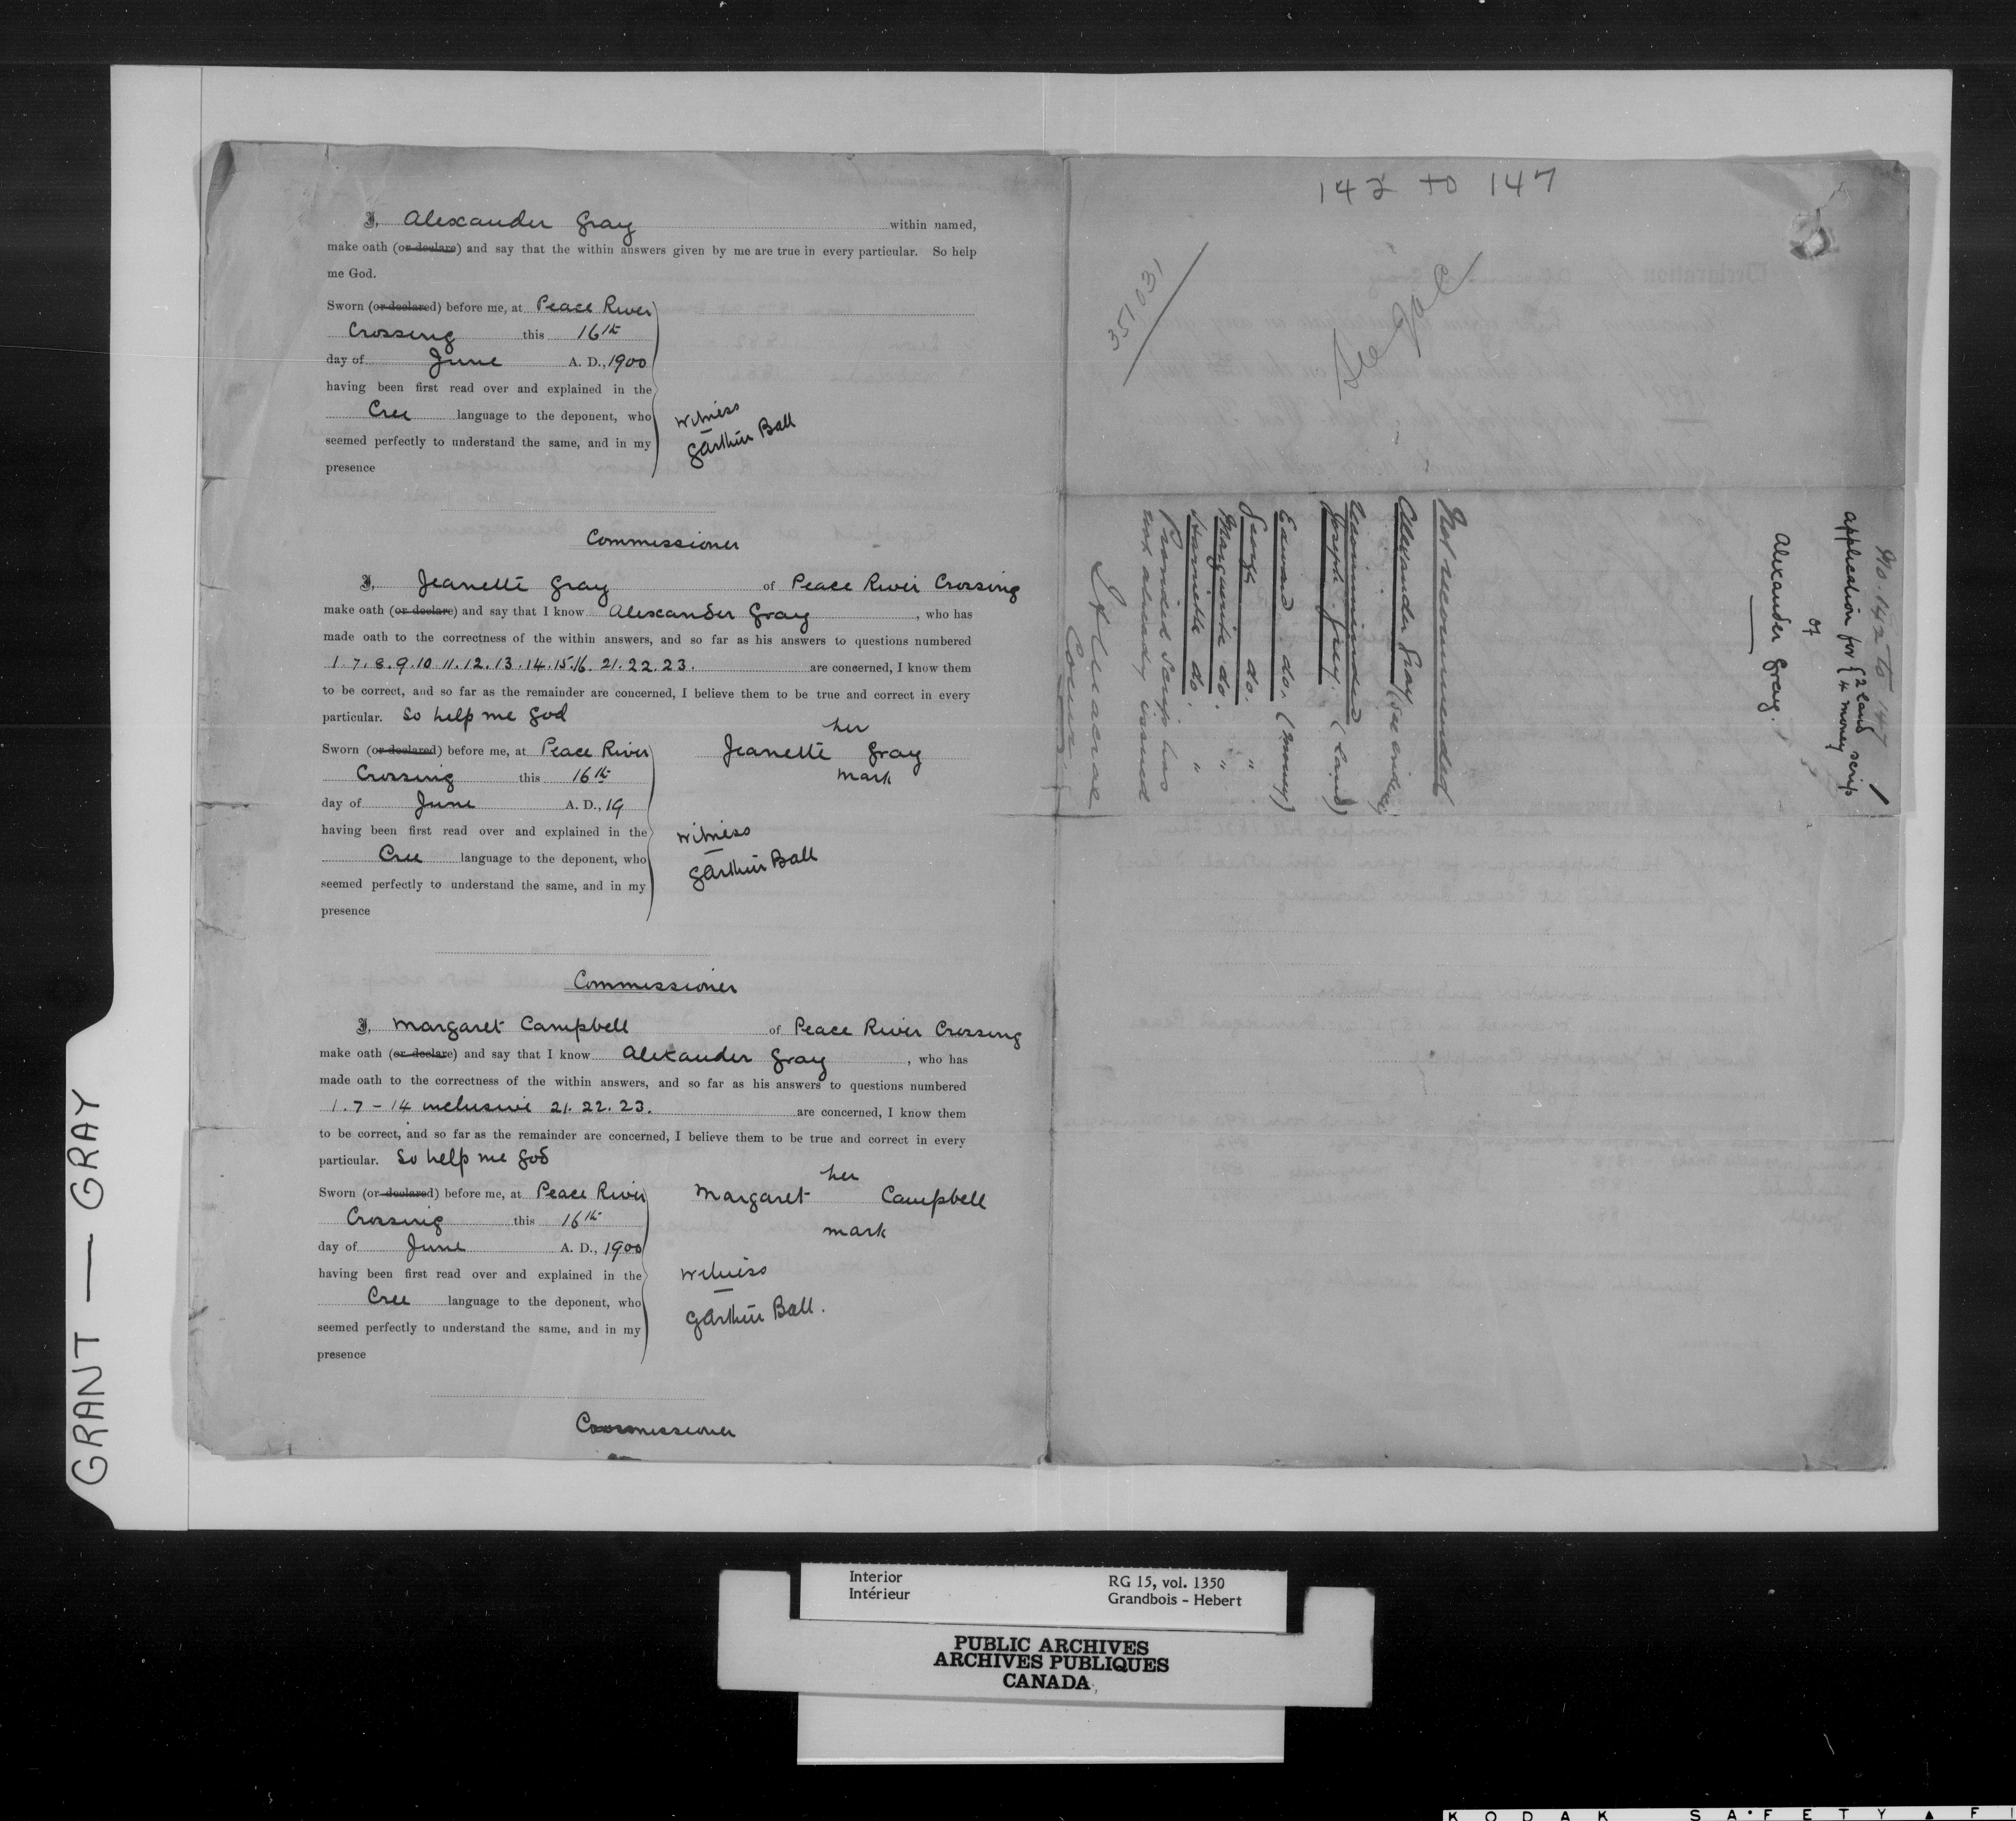 I, Alexander Gray within named,
make oath (or declare) and say that the within answers given by me are true in every particular. So help
me God.
Sworn (or declared) before me, at Peace River
Crossing this 16th
day of June A. D., 1900
having been first read over and explained in the
Cree language to the deponent, who
seemed perfectly to understand the same, and in my
presence
witness
GArthur Ball
Commissioner
I, Jeanette Gray of Peace River Crossing
make oath (or declare) and say that I know Alexander Gray, who has
made oath to the correctness of the within answers, and so far as his answers to questions numbered
1.7.8.9.10.11.12.13.14.15.16.21.22.23. are concerned, I know them
to be correct, and so far as the remainder are concerned, I believe them to be true and correct in every
particular. So help me God
Sworn (or declared) before me, at Peace River
Crossing this 16th
day of June A. D., 19
having been first read over and explained in the
Cree language to the deponent, who
seemed perfectly to understand the same, and in my
presence
her
Jeanette Gray
mark
witness
GArthur Ball
Commissioner
I, Margaret Campbell of Peace River Crossing
make oath (or declare) and say that I know Alexander Gray, who has
made oath to the correctness of the within answers, and so far as his answers to questions numbered
1.7-14 inclusive 21.22.23. are concerned, I know them
to be correct, and so far as the remainder are concerned, I believe them to be true and correct in every
particular. So help me God
Sworn (or declared) before me, at Peace River
Crossing this 16th
day of June A. D., 1900
having been first read over and explained in the
Cree language to the deponent, who
seemed perfectly to understand the same, and in my
presence
her
Margaret Campbell
mark
witness
GArthur Ball.
Commissioner
142 to 147
351,031
See
No. 142 to 147
application for { 2 land scrip
{ 4 money
of
Alexander Gray.
Not recommended
Alexander Gray (see evidence)
Recommended
Joseph Gray. (Land)
Edward do. (money)
George do. "
Marguerite do. "
Harriette do. "
Provided Scrip has
not already issued
Comr
GRANT — GRAY
Interior
Intérieur
RG 15, vol. 1350
Grandbois - Hebert
PUBLIC ARCHIVES
ARCHIVES PUBLIQUES
CANADA
KODAK SAFETY ▲ FI